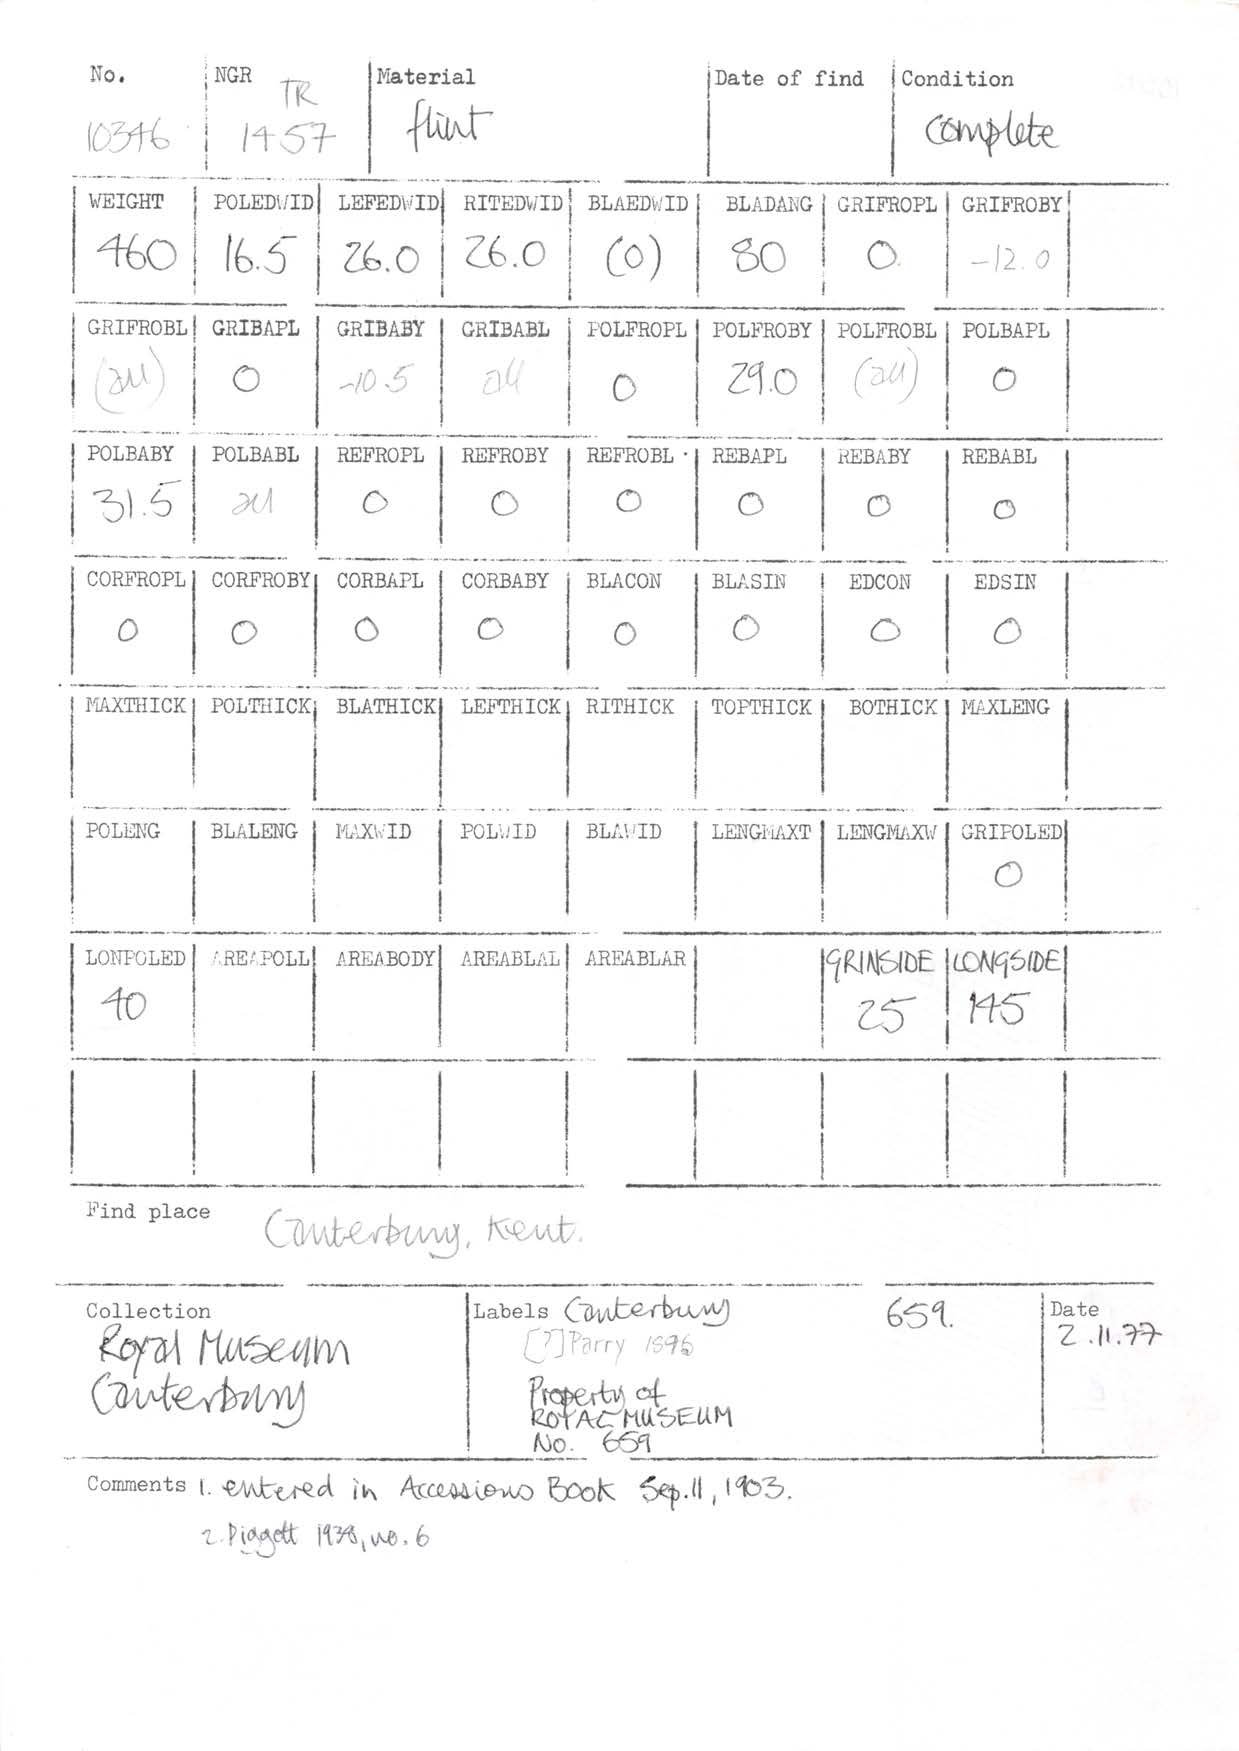 No. NGR Material Date of find Condition
TR
10346 1457 flint complete
WEIGHT POLEDWID LEFEDWID RITEDWID BLAEDWID BLADANG GRIFROPL GRIFROBY
460 16.5 26.0 26.0 (0) 80 0 -12.0
GRIFROBL GRIBAPL GRIBABY GRIBABL POLFROPL POLFROBY POLFROBL POLBAPL
(all) 0 -10.5 all 0 29.0 (all) 0
POLBABY POLBABL REFROPL REFROBY REFROBL REBAPL REBABY REBABL
31.5 all 0 0 0 0 0 0
CORFROPL CORFROBY CORBAPL CORBABY BLACON BLASIN EDCON EDSIN
0 0 0 0 0 0 0 0
MAXTHICK POLTHICK BLATHICK LEFTHICK RITHICK TOPTHICK BOTHICK MAXLENG
POLENG BLALENG MAXWID POLWID BLAWID LENGMAXT LENGMAXW GRIPOLED
0
LONPOLED AREAPOLL AREABODY AREABLAL AREABLAR GRINSIDE LONGSIDE
40 25 145
Find place Canterbury, Kent.
Collection Labels Canterbury 659. Date
Royal Museum [?] Parry 1896 2.11.77
Canterbury Property of
ROYAL MUSEUM
No. 659
Comments 1. entered in Accessions Book Sep. 11, 1903.
2. Piggott 1938, no. 6